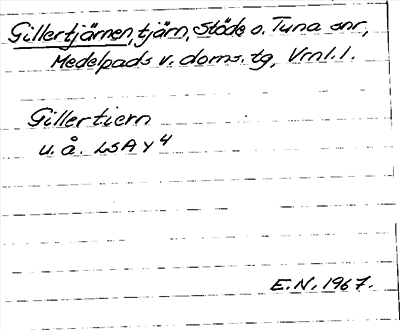 Gillertjärnen, tjärn, Stöde o. Tuna snr,
Medelpads v. doms. tg, Vrnl. l.
Gillertiern
u. å. LSA Y 4
E.N. 1967.